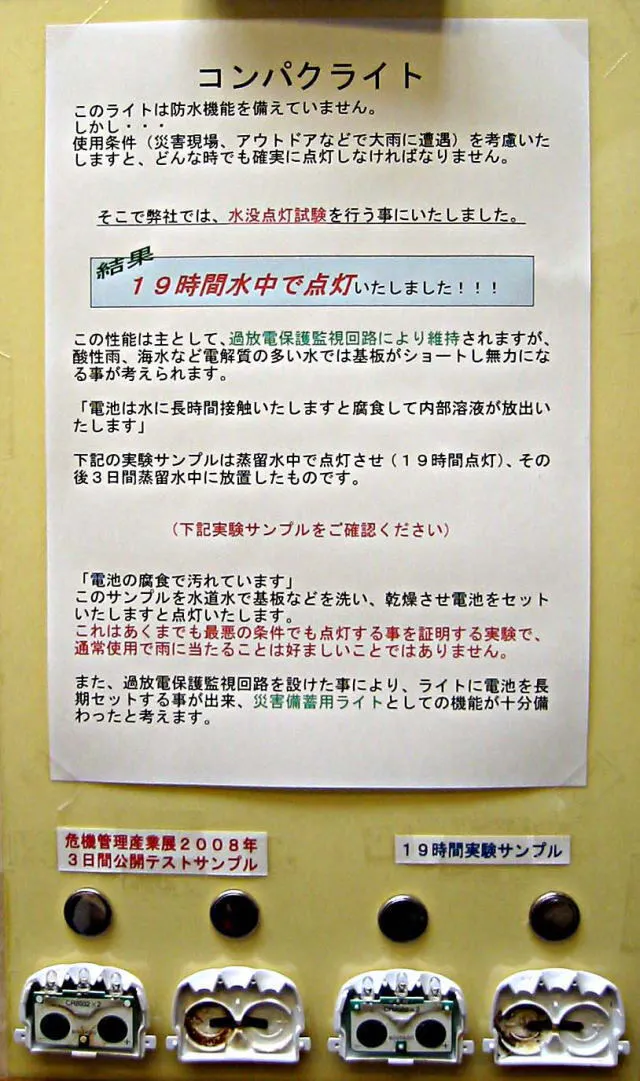 コンパクライト
このライトは防水機能を備えていません。
しかし・・・
使用条件（災害現場、アウトドアなどで大雨に遭遇）を考慮いた
しますと、どんな時でも確実に点灯しなければなりません。
そこで弊社では、水没点灯試験を行う事にいたしました。
結果
１９時間水中で点灯いたしました！！！
この性能は主として、過放電保護監視回路により維持されますが、
酸性雨、海水など電解質の多い水では基板がショートし無力にな
る事が考えられます。
「電池は水に長時間接触いたしますと腐食して内部溶液が放出い
たします」
下記の実験サンプルは蒸留水中で点灯させ（１９時間点灯）、その
後３日間蒸留水中に放置したものです。
（下記実験サンプルをご確認ください）
「電池の腐食で汚れています」
このサンプルを水道水で基板などを洗い、乾燥させ電池をセット
いたしますと点灯いたします。
これはあくまでも最悪の条件でも点灯する事を証明する実験で、
通常使用で雨に当たることは好ましいことではありません。
また、過放電保護監視回路を設けた事により、ライトに電池を長
期セットする事が出来、災害備蓄用ライトとしての機能が十分備
わったと考えます。
危機管理産業展２００８年
３日間公開テストサンプル
１９時間実験サンプル